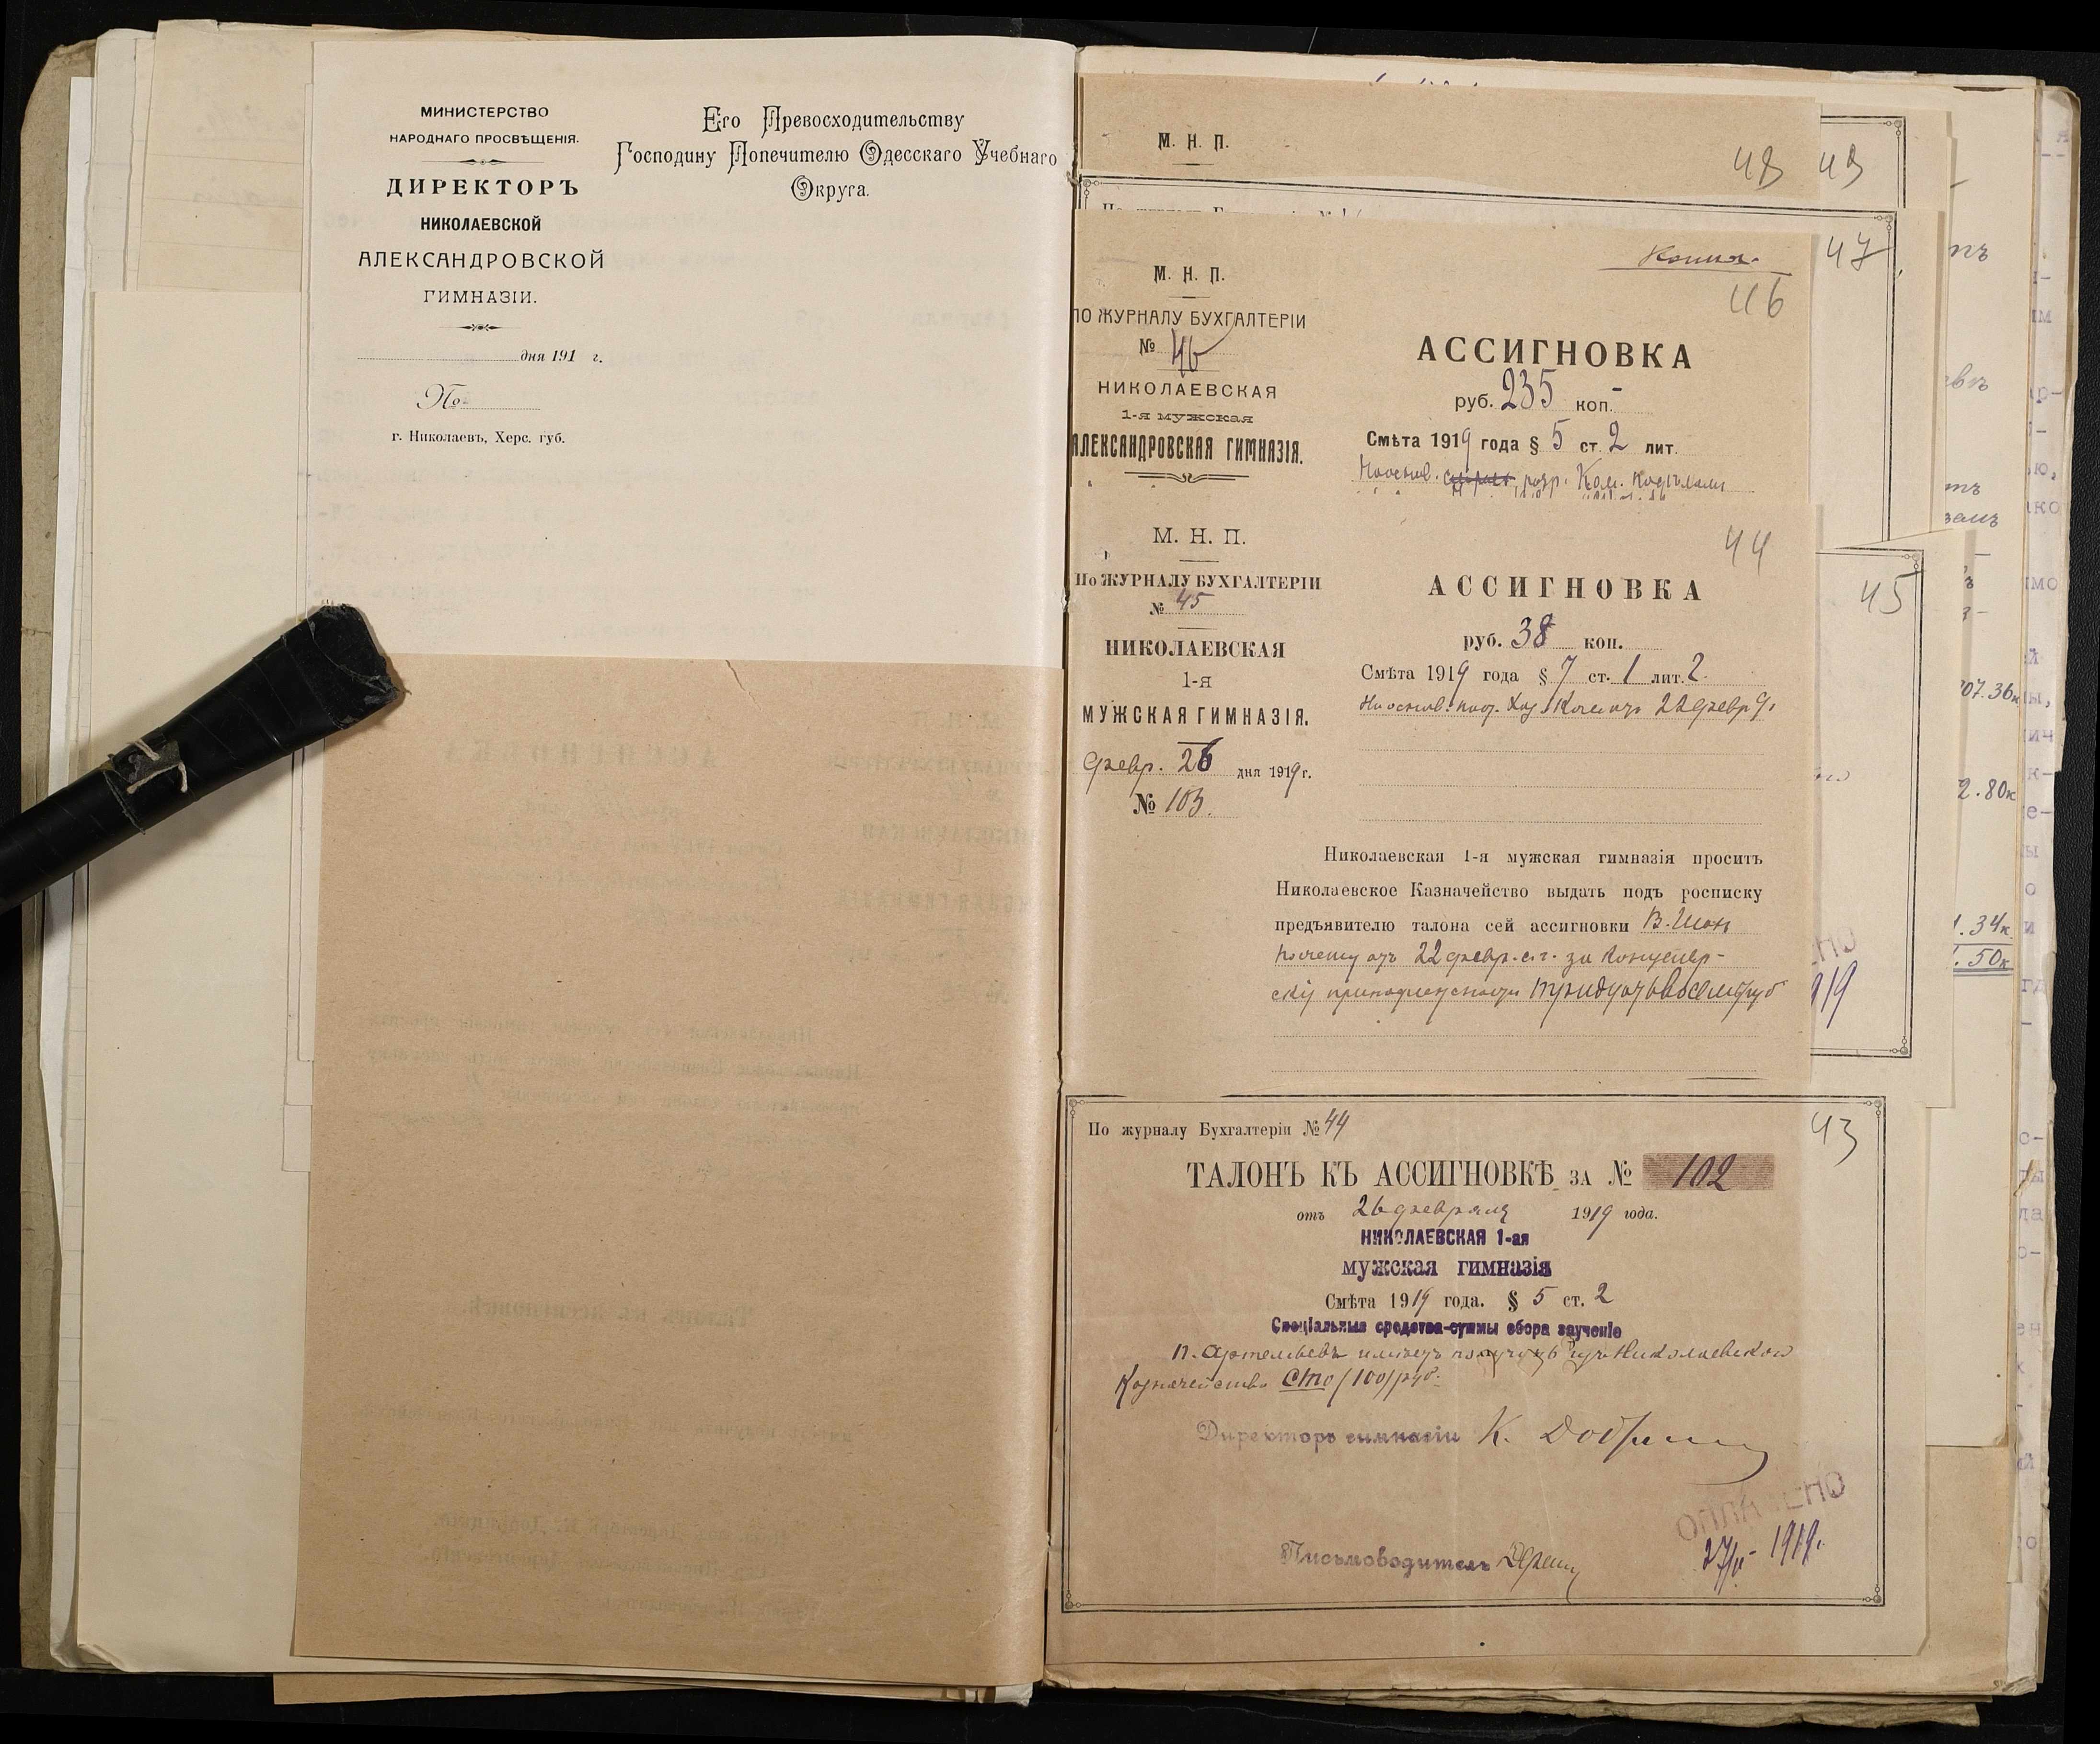 МИНИСТЕРСТВО
НАРОДНАГО ПРОСВѢЩЕНІЯ.
ДИРЕКТОРЪ
НИКОЛАЕВСКОЙ
АЛЕКСАНДРОВСКОЙ
ГИМНАЗІИ.
дня 191 г.
№
г. Николаевъ, Херс. губ.
Его Превосходительству
Господину Попечителю Одесскаго Учебнаго
Округа.
М. Н. П.
48
49
47
Копия.
46
М. Н. П.
ПО ЖУРНАЛУ БУХГАЛТЕРІИ
№ 46
НИКОЛАЕВСКАЯ
1-я мужская
АЛЕКСАНДРОВСКАЯ ГИМНАЗІЯ.
АССИГНОВКА
руб. 235 коп. -
Смѣта 1919 года § 5 ст. 2 лит.
44
45
М. Н. П.
По ЖУРНАЛУ БУХГАЛТЕРІИ
№ 45
НИКОЛАЕВСКАЯ
1-я
МУЖСКАЯ ГИМНАЗІЯ.
февр. 26 дня 1919 г.
№ 103.
АССИГНОВКА
руб. 38 коп.
Смѣта 1919 года § 7 ст. 1 лит. 2.
22 февр.
Николаевская 1-я мужская гимназія проситъ
Николаевское Казначейство выдать подъ росписку
предъявителю талона сей ассигновки В. Шон
по счету отъ 22 февр. с. г. за канцеляр-
скія принадлежности тридцать восемь руб
07.36к
2.80к
1.34к
.50к
По журналу Бухгалтеріи № 44
43
ТАЛОНЪ КЪ АССИГНОВКѢ ЗА № 102
отъ 26 февраля 1919 года.
НИКОЛАЕВСКАЯ 1-ая
мужская гимназія
Смѣта 1919 года. § 5 ст. 2
Спеціальныя средства-суммы сбора за ученіе
П. Артемьевъ имѣетъ получить изъ Николаевскаго
Казначейства сто (100) руб.
Директоръ гимназіи К. Доб
ОПЛАЧЕНО
27/II 1919 г.
Письмоводитель